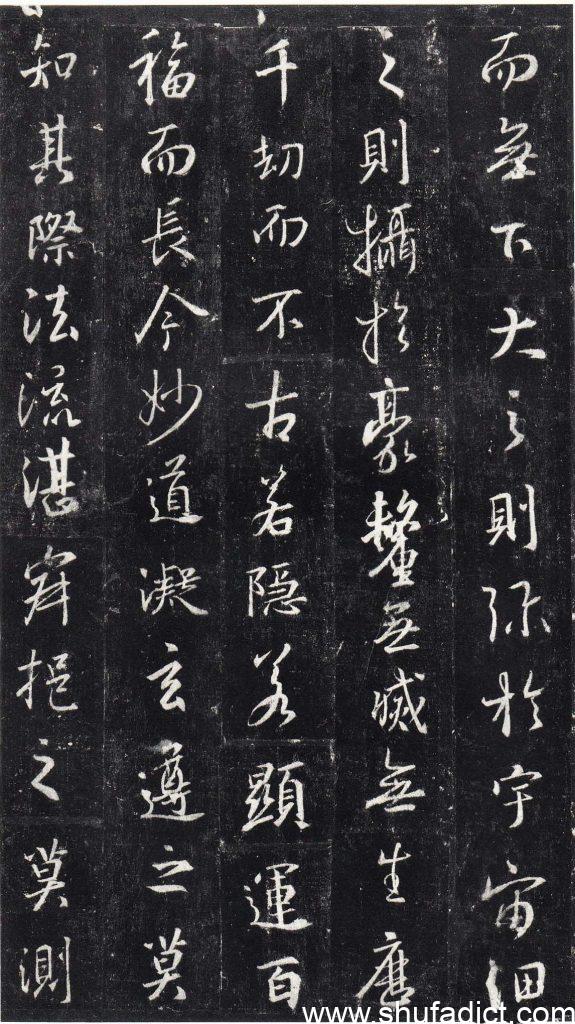 而無下大之則彌於宇宙細
之則攝於豪氂無滅無生歷
千劫而不古若隱若顯運百
福而長今妙道凝玄遵之莫
知其際法流湛寂挹之莫測
www.shufadict.com